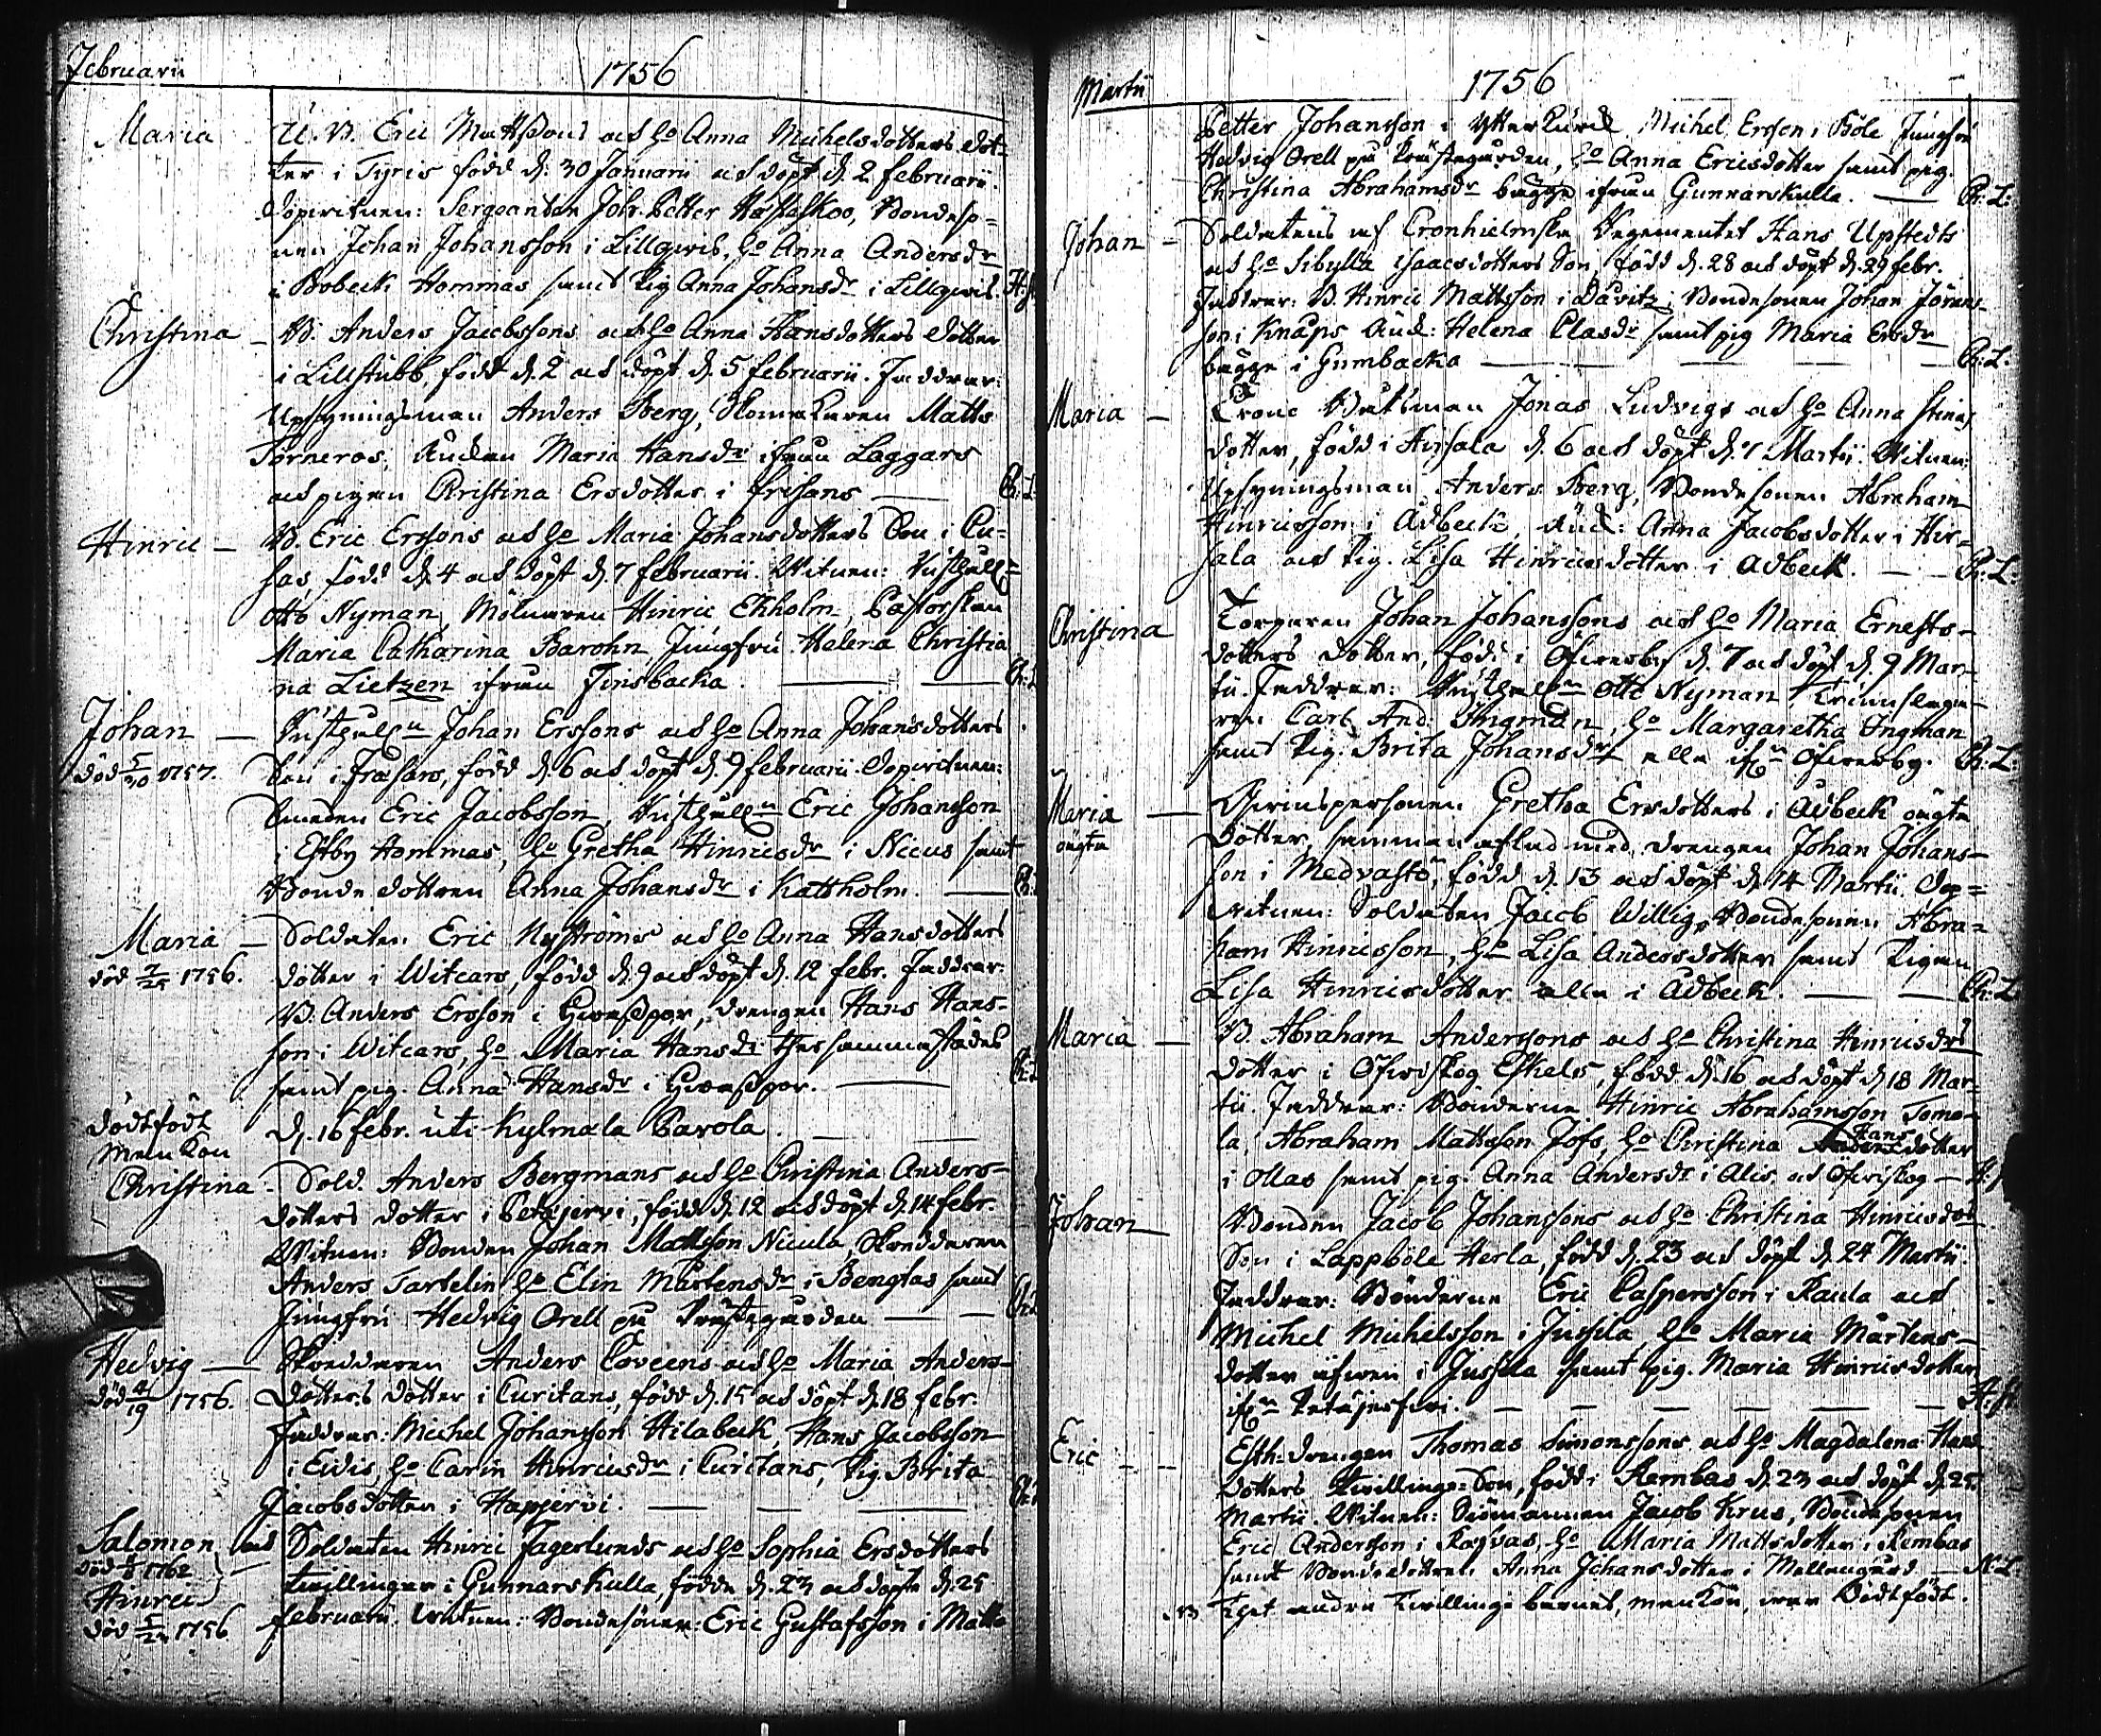 Februarii
1756
Maria
U. B. Eric Mattsons och h:o Anna Michelsdotters dot-
ter i Tyris född d. 30 Januarii och döpt d. 2 februarii.
Dopvitnen: Sergeanten Joh. Petter Bondeso-
nen Johan Johansson i Lillgvis, h:o Anna Andersdr
i Bobeck Hommas samt Pig Anna Johansdr i Lillgvis.
Christina
B. Anders Jacobssons och h:o Anna Hansdotters dotter
i Lillstubb, född d. 2 och döpt d. 5 februarii. Faddrar:
Upsyningsman Anders Berg, Skomakaren Matts
Törneros, Enckan Maria Hansdr ifrån Laggars
och pigan Christina Ersdotter i frisans — Ch: L:
Hinric —
B. Eric Erssons och h:o Maria Johansdotters Son i Cu-
sas, född d. 4 och döpt d. 7 februarii. Witnen: Rusthåll:
Otto Nyman, Mölnaren Hinric Ekholm, Pastorskan
Maria Catharina Barohn, Jungfru Helena Christi
na Lietzen ifrån Finsbacka. — Ch: L
Johan —
död 5/30 1757.
Rusthålln Johan Erssons och h:o Anna Johansdotters
Son i Frasars, född d. 6 och döpt d. 9 februarii. Dopvitnen:
bonden Eric Jacobsson, Rusthålln Eric Johansson
i Estby Hommas, h:o Gretha Hinricsdr i Nicus samt
Bonde dottren Anna Johansdr i Kattholm. —
Maria —
död 7/25 1756.
Soldaten Eric Nyströms och h:o Anna Hansdotters
dotter i Witcars, född d. 9 och döpt d. 12 febr. Faddrar:
B. Anders Ersson i drengen Hans Hans-
son i Witcars, h:o Maria Hansdr thersammastädes
samt pig. Anna Hansdr i
dödtfödt
mankön
D. 16 febr. uti Kylmäla Pavola.
Christina
Sold. Anders Bergmans och h:o Christina Anders-
dotters dotter i Petäjervi, född d. 12 och döpt d. 14 febr.
Witnen: Bonden Johan Mattsson Nicula, Skreddaren
Anders Tartelin h:o Elin Mårtensdr i Bengtas samt
Jungfru Hedvig Orell på Prästegården —
Hedvig —
död 4/19 1756.
Skreddaren Anders och h:o Maria Anders-
dotters dotter i Curitans, född d. 15 och döpt d. 18 febr.
Faddrar: Michel Johansson Hilabeck, Hans Jacobsson
i Evis, h:o Carin Hinricsdr i Curitans, Pig. Brita
Jacobsdotter i Hapjervi.
Salomon, och
död 1762
Hinric
död 5/24 1756
Soldaten Hinric Fagerlunds och h:o Sophia Ersdotters
twillingar i Gunnarskulla, födde d. 23 och döpte d. 25
februarii. Witnen: Bondesönen: Eric Gustafsson i Matts
Martii
1756
Petter Johansson i Ytterkurck, Michel Ersson i Böle, Jungfru
Hedvig Orell på Prästegården, h:o Anna Ericsdotter samt pig.
Christina Abrahamsdr bägge ifrån Gunnarskulla. — Ch: L:
Johan —
Soldatens af Cronhielmska Regementet Hans Upstedts
och h:o Sibylla Isaacsdotters Son, född d. 28 och döpt d. 29 febr.
Faddrar: B. Hinric Mattsson i Davitz, Bondesonen Johan Jörans-
son i Knaps Enck: Helena Clasdr samt pig Maria Ersdr
bägge i Gumbacka — Ch: L.
Maria —
Crono Båtsman Jonas Ludvigs och h:o Anna Stinas
dotter, född i Hirsala d. 6 och döpt d. 7 Martii. Witnen:
Upsyningsman Anders Berg, Bondesonen Abraham
Hinricsson i Ådbeck, Enck: Anna Jacobsdotter i Hir-
sala och Pig. Lisa Hinricsdotter i Ådbeck. — Ch: L:
Christina
Torparen Johan Johanssons och h:o Maria Ernests-
dotters dotter, född i Öfvresby d. 7 och döpt d. 9 Mar-
tii. Faddrar: Rusthålln Otto Nyman, Trumslaga-
ren Carl And: Ingman, h:o Margaretha Ingman
samt Pig. Brita Johansdr alla ifrn Öfvresby. Ch: L:
Maria —
oägta
Qvinspersonen Gretha Ersdotters i Ådbeck oägta
dotter, samman aflad med drengen Johan Johans-
son i Medvastö, född d. 13 och döpt d. 14 Martii. Dop-
vitnen: Soldaten Jacob Willig, Bondesonen Abra-
ham Hinricsson, h:o Lisa Andersdotter samt Pigan
Lisa Hinricsdotter alla i Ådbeck. — Ch: L:
Maria —
B. Abraham Anderssons och h:o Christina Hinricsdrs
dotter i Öfvirskog Eskels, född d. 16 och döpt d. 18 Mar-
tii. Faddrar: Bönderne Hinric Abrahamsson Tomo-
la, Abraham Mattsson Jofs, h:o Christina Hans dotter
i Ollas samt pig. Anna Andersdr i Alis, och Öfvirskog —
Johan
Bonden Jacob Johanssons och h:o Christina Hinricsdrs
Son i Lappböle Herla, född d. 23 och döpt d. 24 Martii.
Faddrar: Bönderne Eric Caspersson i Raula och
Michel Michelsson i Jussila, h:o Maria Mårtens-
dotter äfven i Jussila samt pig. Maria Hinricsdotter
ifrn Petäjerfvi. —
Eric —
Esth-drengen Thomas Simonssons och h:o Magdalena Hans
dotters Twillinge-Son, född i Rembas d. 23 och döpt d. 25
Martii. Witnen: Siömannen Jacob Krus, Bondesonen
Eric Andersson i h:o Maria Mattsdotter i Rembas
samt Bondedotren Anna Johansdotter i Mellangård — N: L:
NB Thet andra Twillinge barnet, mankön, war Dödtfödt.